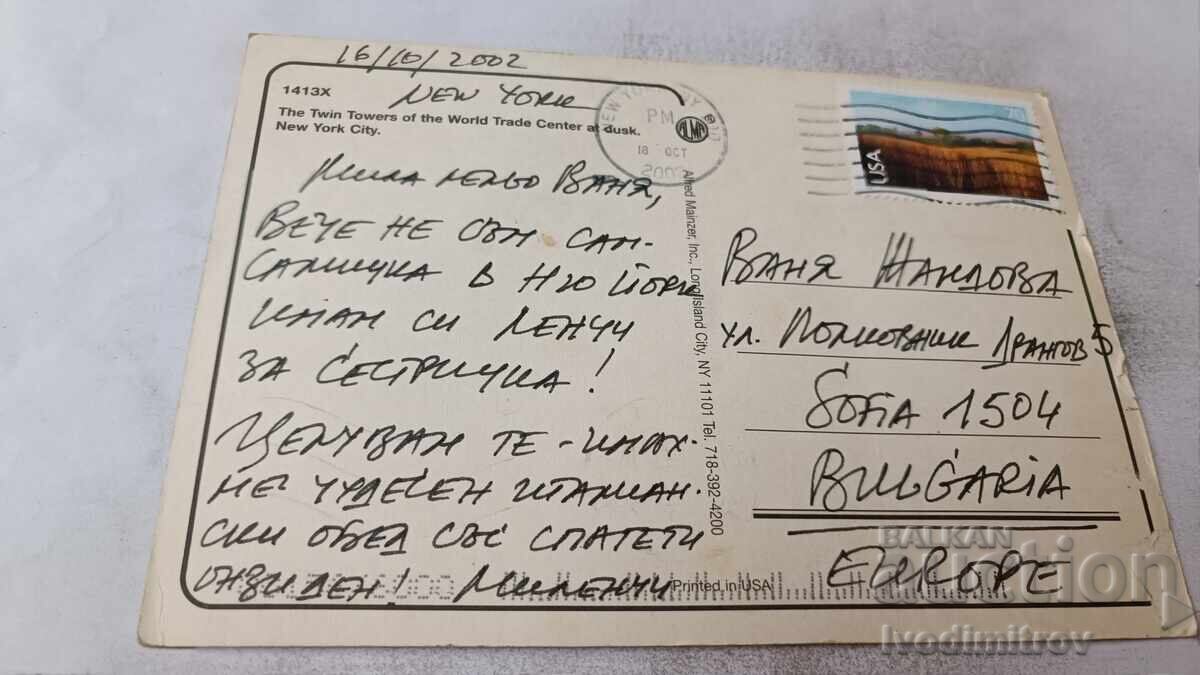 16/10/2002
1413X
NEW YORK
The Twin Towers of the World Trade Center at dusk.
New York City.
NEW YORK NY
PM
18 OCT
2002
ALMA
USA
70
Мила лельо Ваня,
Вече не съм сам-
самичка в Ню Йорк
имам си Ленчи
за сестричка!
Целувам те - имах-
ме чудесен италиан-
ски обед със спагети
онзи ден! Миленчи
Alfred Mainzer, Inc., Long Island City, NY 11101 Tel. 718-392-4200
Ваня Жандова
ул. Полковник Дрангов 5
Sofia 1504
BULGARIA
EUROPE
Printed in USA
BALKAN
auction
Ivodimitrov